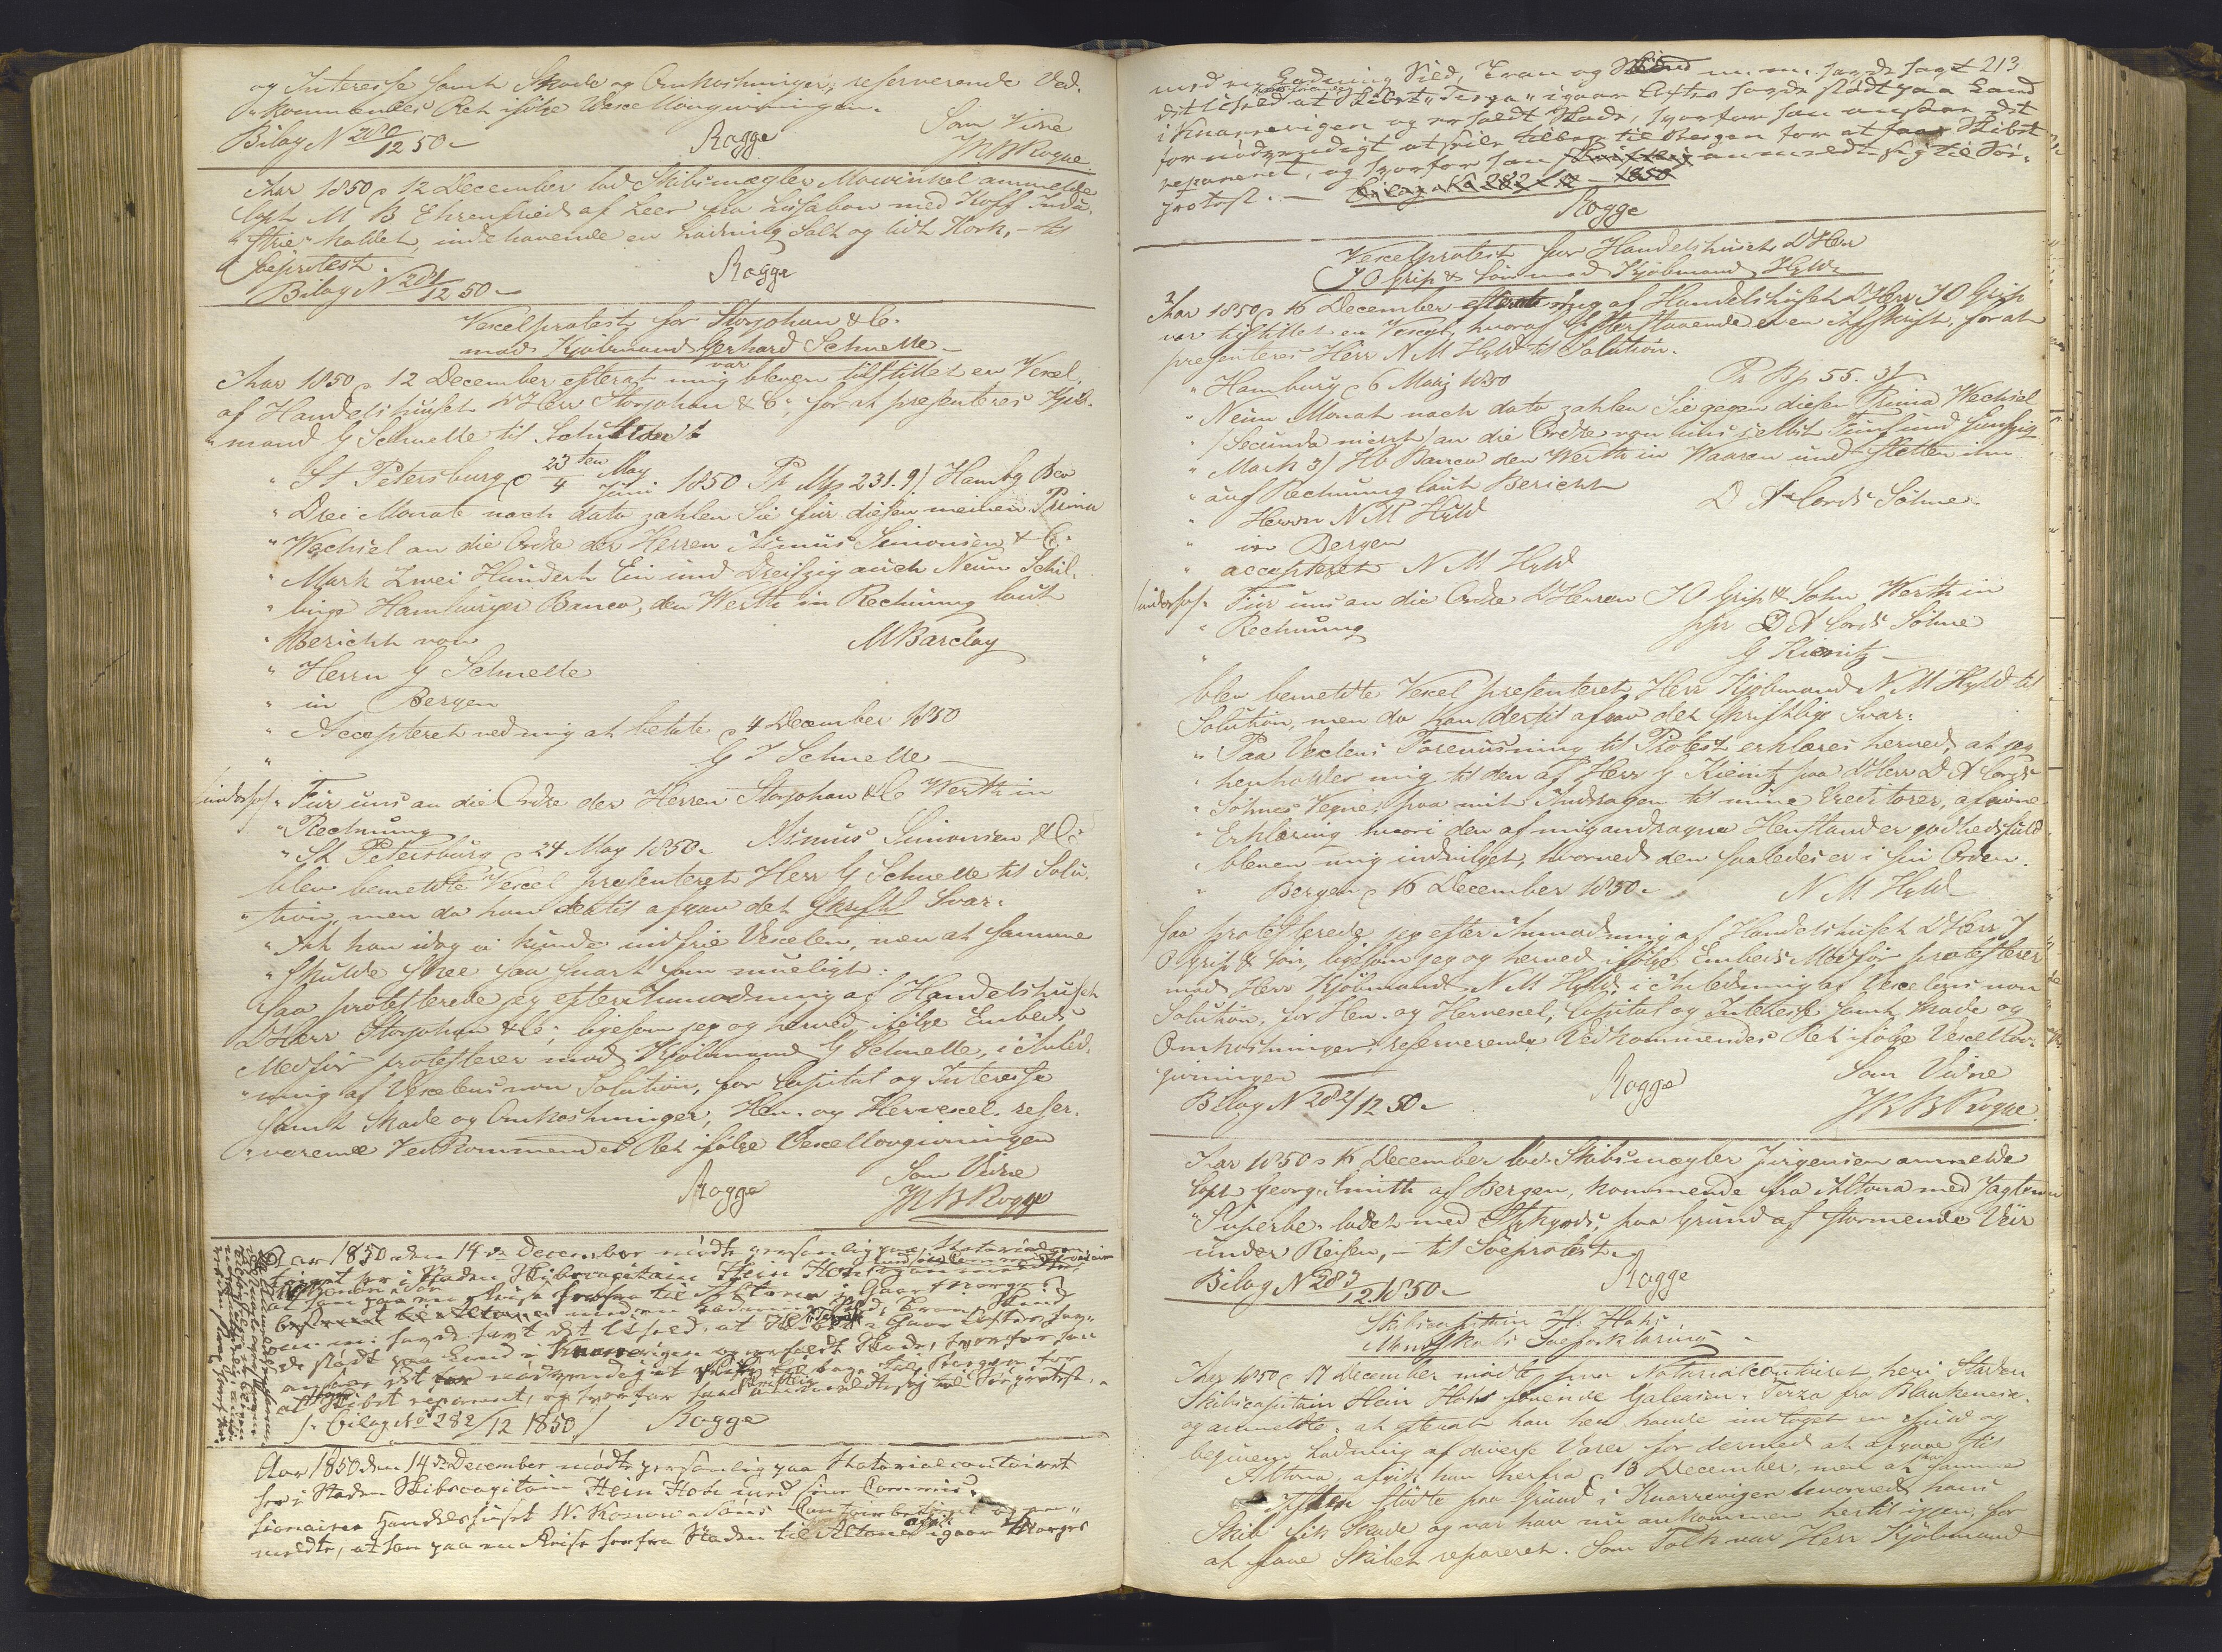 og Interesse samt Skade og Omkostninger, reserverende Ved-
kommendes Ret ifölge Vexellovgivningen.
Bilag N 280/12 50 Ragge Som Vidne
JRB Rogge
Aar 1850 12 December lod Skibsmægler Mowinkel anmelde
Capt M B Ehrenfried af Leer fra Lissabon med Koff Indu-
strie kaldet, indehavende en Ladning Salt og lidt Kork, - til
Söeprotest.
Bilag N 281/12 50 Ragge
Vexelprotest for Storjohan & Co.
mod Kjöbmand Gerhard Schnelle
Aar 1850 12 December efterat mig var bleven tilstillet en Vexel,
af Handelshuset DHerr Storjohan & Co, for at presenteres Kjöb-
mand G Schnelle til Solution
" St Petersburg 23ten May / 4 Juni 1850 Pr Mp 231.9/ Hambg Bco
" Drei Monate nach dato zahlen Sie für diesen meinen Prima
" Wechsel an die Ordre der Herren Asmus Simonsen & Co
" Mark Zwei Hundert Ein und Dreiszig auch Neun Schil-
" linge Hamburger Banco, den Werth in Rechnung laut
" Bericht von M Barclay
" Herrn G Schnelle
" in Bergen
" Accepteret ved mig at betale 4 December 1850
" G Schnelle
" Für uns an die Ordre der Herren Storjohan & Co Werth in
" Rechnung
" St Petersburg 24 May 1850. Asmus Simonsen & Co
blev bemeldte Vexel presenteret Herr G Schnelle til Solu-
tion, men da han dertil afgav det skriftl Svar:
" At han idag ei kunde indfrie Vexelen, men at samme
" skulde skee saa snart som mueligt:
saa protesterede jeg efter Anmodning af Handelshuset
DHerr Storjohan & Co, ligesom jeg og herved ifölge Embeds
Medfør protesterer mod Kjöbmand G Schnelle, i Anled-
ning af Vexelens non Solution, for Capital og Interesse
samt Skade og Omkostninger, Hen- og Hervexel reser-
verende Vedkommendes Ret ifölge Vexellovgivningen
Ragge Som Vidne
JRB Rogge
Aar 1850 den 14de December mödte personlig paa Notarialcon-
toiret her i Staden Skibscapitain Hein Hots
at han paa en Reise herfra til Altona i Gaar Morges
med en Ladning Sild, Tran
havde stödt paa Grund i Knarrevigen og erholdt Skade, hvorfor han
anseer det nödvendigt at tilbage til Bergen for
at faae Skibet reparert, og hvorfor han anmeldte sig til Söeprotest.
/: bilag No 282/12 1850 :/ Ragge
Aar 1850 den 14de December mödte personlig paa Notarialcontoiret
her i Staden Skibscapitain Hein Hots med sine Commis-
sionairer Handelshuset W. Konow & Söns Contoirbetjent og an-
meldte, at han paa en Reise herfra Staden til Altona igaar Morges
213
med en Ladning Sild, Tran og m. m. havde
at Skibet "Terza" igaar Aftes havde stödt paa Land
i Knarrevigen og erholdt Skade, hvorfor han anseer det
fornödvendigt at seile tilbage til Bergen for at faae Skibet
repareret, og hvorfor han anmeldte sig til Söe-
protest. - bilag No 282/12 - 1850
Ragge
Vexelprotest for Handelshuset DHerr
J O Grip & Sön mod Kjöbmand Hyld
Aar 1850 16 December efterat mig af Handelshuset DHerr J O Grip
var tilstillet en Vexel, hvoraf Efterstaaende er en Afskrift, for at
presenteres Herr N M Hyld til Solution.
" Hamburg 6 Marz 1850 Pr Bp 55. 3/
" Neun Monat nach dato zahlen Sie gegen diesen Prima Wechsel
" (Secunda nicht) an die Ordre von uns selbst Fünf und funfzig
" Mark 3/ Hb Banco den Werth in Waaren und stellen ihn
" auf Rechnung laut Bericht D A Cords Söhne
" Herrn N M Hyld
" in Bergen
" accepteret N M Hyld
" Für uns an die Ordre DHerren J O Grip & Sohn Werth in
" Rechnung ppr D A Cords Söhne
" G Kienitz
blev bemeldte Vexel presenteret Herr Kjöbmand N M Hyld til
Solution, men da han dertil afgav det skriftlige Svar:
" Paa Vexlens Foreviisning til Protest erklæres herved, at jeg
" henholder mig til den af Herr G Kienitz paa DHerr D A Cords
" Söhnes Vegne, paa mit Andragen til mine Creditorer, afgivne
" Erklæring hvori den af mig andragne Henstand er godhedsfuld
" bleven mig indvilget, hvorved den saaledes er i sin Orden.
" Bergen 16 December 1850. N M Hyld
saa protesterede jeg efter Anmodning af Handelshuset DHerr J
O Grip & Sön, ligesom jeg og herved ifölge Embeds Medför protesterer
mod Herr Kjöbmand N M Hyld i Anledning af Vexelens non
Solution, for Hen- og Hervexel, Capital og Interesse samt Skade og
Omkostninger, reserverende Vedkommendes Ret ifölge Vexellov-
givningen
Bilag N 282/12 50 Ragge Som Vidne
JRB Rogge
Aar 1850 16 December lod Skibsmægler Jürgensen anmelde
Capt Georg Smith af Bergen, kommende fra Altona med Jagten
"Superbe" ladet med Stykgods, paa Grund af stormende Veir
under Reisen, - til Söeprotest
Bilag N 283/12.1850 Ragge
Skibscapitain H: Hots
Mandskabs Söeforklaring
Aar 1850 17 December mödte paa Notarialcontoiret heri Staden
Skibscapitain Hein Hots förende Galeasen Terza fra Blankenese
og anmeldte: at efterat han her havde indtaget en fuld og
beqvem Ladning af diverse Varer for dermed at afgaae til
Altona, afgik han herfra 13 December, men at han samme
Aften stödte paa Grund i Knarrevigen hvorved hans
Skib fik Skade og var han nu ankommen hertil igjen, for
at faae Skibet repareret. Som Tolk var Herr Kjöbmand